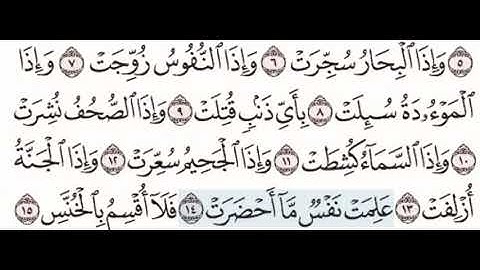 ۝٥ وَإِذَا ٱلۡبِحَارُ سُجِّرَتۡ ۝٦ وَإِذَا ٱلنُّفُوسُ زُوِّجَتۡ ۝٧ وَإِذَا
ٱلۡمَوۡءُۥدَةُ سُئِلَتۡ ۝٨ بِأَيِّ ذَنۢبٖ قُتِلَتۡ ۝٩ وَإِذَا ٱلصُّحُفُ نُشِرَتۡ
۝١٠ وَإِذَا ٱلسَّمَآءُ كُشِطَتۡ ۝١١ وَإِذَا ٱلۡجَحِيمُ سُعِّرَتۡ ۝١٢ وَإِذَا ٱلۡجَنَّةُ
أُزۡلِفَتۡ ۝١٣ عَلِمَتۡ نَفۡسٞ مَّآ أَحۡضَرَتۡ ۝١٤ فَلَآ أُقۡسِمُ بِٱلۡخُنَّسِ ۝١٥